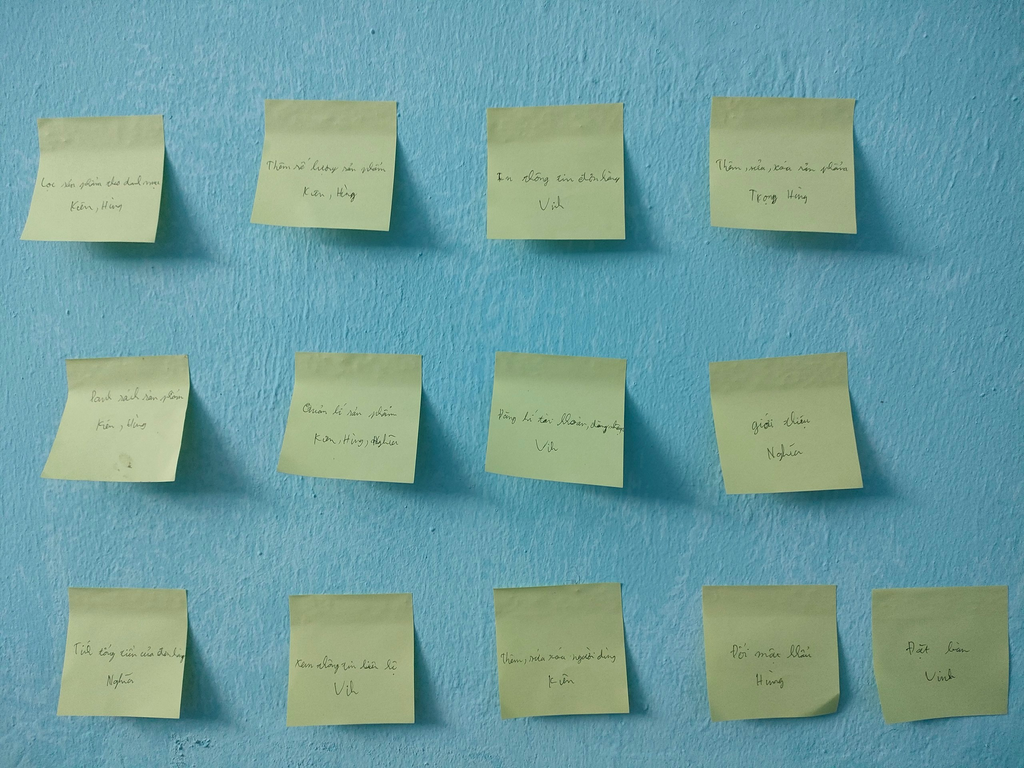 Lọc sản phẩm theo danh mục
Kiên, Hùng
Thêm số lượng sản phẩm
Kiên, Hùng
In thông tin đơn hàng
Vinh
Thêm, sửa, xóa sản phẩm
Trọng Hùng
Danh sách sản phẩm
Kiên, Hùng
Quản lí sản phẩm
Kiên, Hùng, Nghĩa
Đăng kí tài khoản, đăng nhập
Vinh
giới thiệu
Nghĩa
Tính tổng tiền của đơn hàng
Nghĩa
Xem thông tin liên hệ
Vinh
Thêm, sửa xóa người dùng
Kiên
Đổi mật khẩu
Hùng
Đặt bàn
Vinh